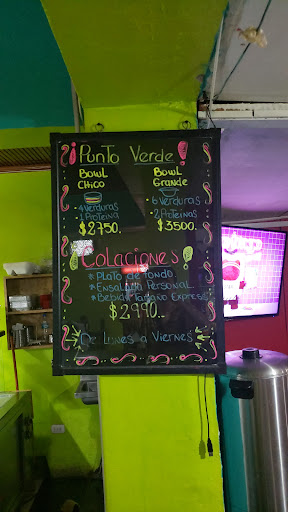 ¡Punto Verde!
Bowl Chico
Bowl Grande
4 Verduras
1 Proteina
$2750.
6 Verduras
2 Proteinas
$3500.
¡Colaciones!
*Plato de fondo
*Ensalada Personal
*Bebida Tamaño Express
$2990..
De Lunes a Viernes